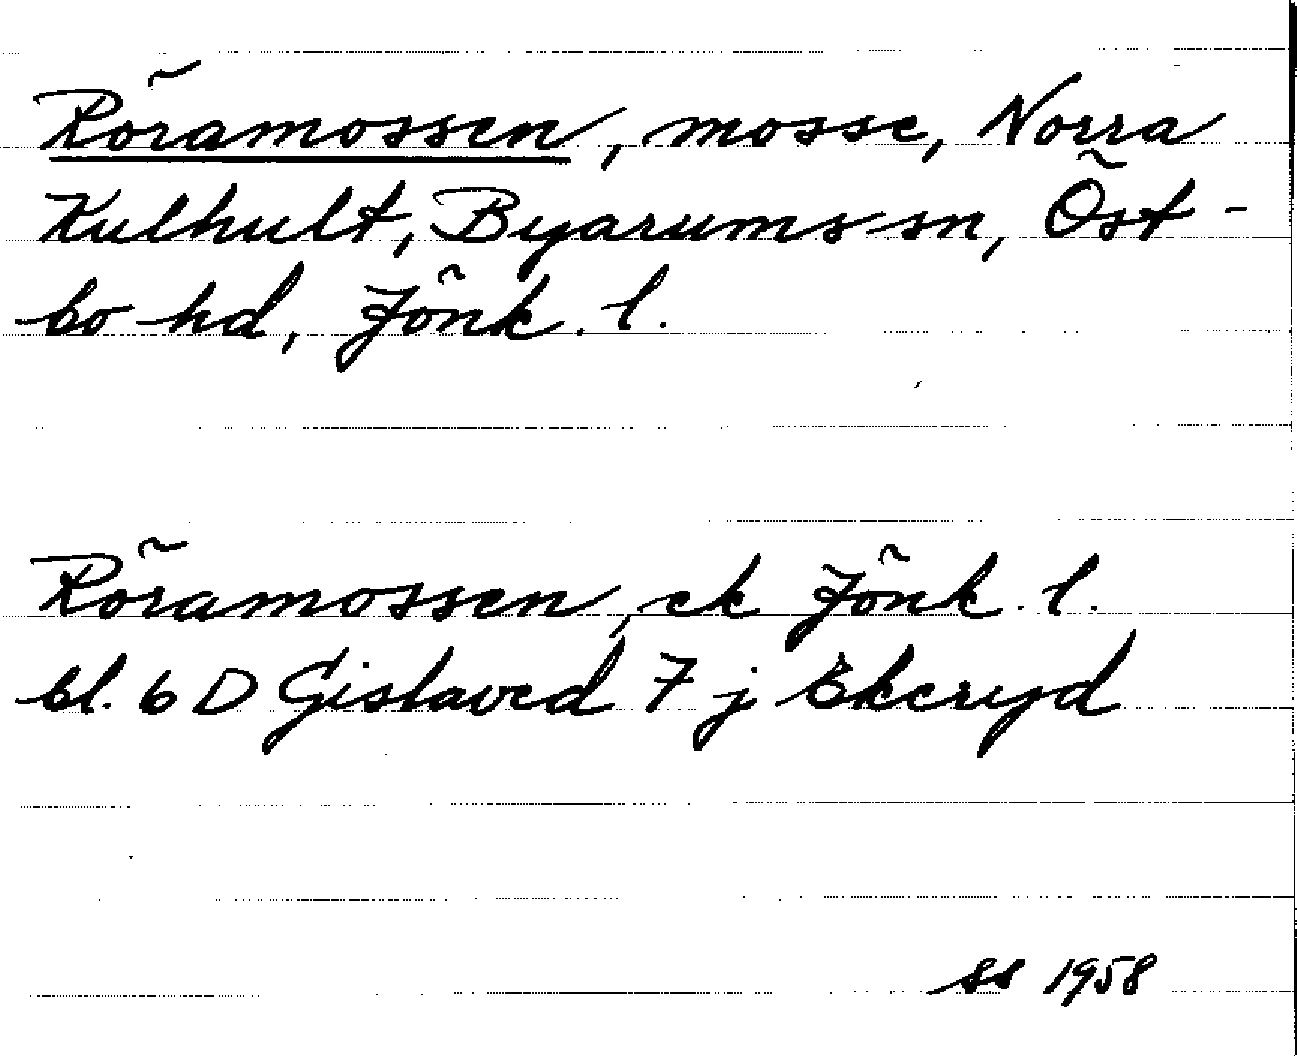 Röramossen, mosse, Norra
Kulhult, Byarums sn, Öst-
bo hd, Jönk. l.
Röramossen, ek Jönk. l.
bl. 6 D Gislaved 7 j Ekeryd
ss 1958